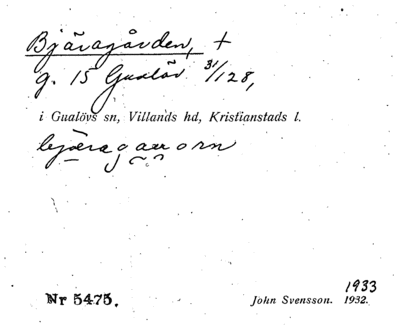 Bjäragården, +
g. 15 Gualöv 31/128,
i Gualövs sn, Villands hd, Kristianstads l.
Nr 5475.
1933
John Svensson. 1932.